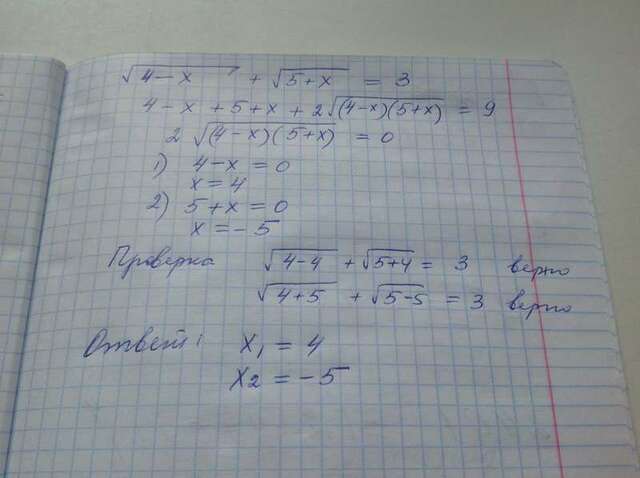 √(4-x) + √(5+x) = 3
4-x + 5+x + 2√((4-x)(5+x)) = 9
2 √((4-x)(5+x)) = 0
1) 4-x = 0
x = 4
2) 5+x = 0
x = -5
Проверка √(4-4) + √(5+4) = 3 верно
√(4+5) + √(5-5) = 3 верно
Ответ: x₁ = 4
x₂ = -5